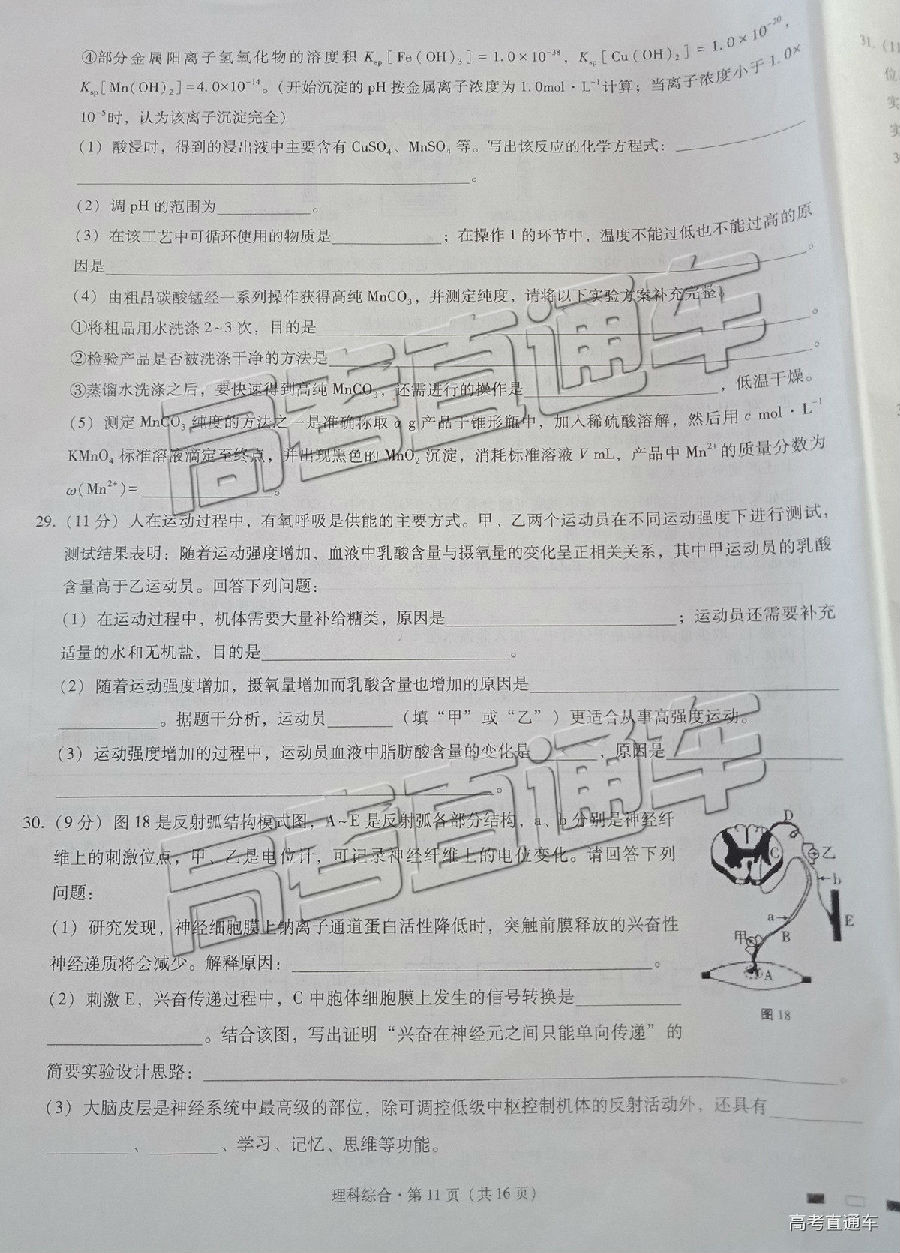 ④部分金属阳离子氢氧化物的溶度积 Ksp[Fe(OH)3]=1.0×10⁻³⁸, Ksp[Cu(OH)2]=1.0×10⁻²⁰,
Ksp[Mn(OH)2]=4.0×10⁻¹⁴。(开始沉淀的 pH 按金属离子浓度为 1.0mol·L⁻¹计算;当离子浓度小于 1.0×
10⁻⁵时,认为该离子沉淀完全)
(1) 酸浸时,得到的浸出液中主要含有 CuSO4、MnSO4 等。写出该反应的化学方程式:
。
(2) 调 pH 的范围为 。
(3) 在该工艺中可循环使用的物质是 ;在操作 I 的环节中,温度不能过低也不能过高的原
因是 。
(4) 由粗品碳酸锰经一系列操作获得高纯 MnCO3,并测定纯度,请将以下实验方案补充完整:
①将粗品用水洗涤 2~3 次,目的是 。
②检验产品是否被洗涤干净的方法是 。
③蒸馏水洗涤之后,要快速得到高纯 MnCO3,还需进行的操作是 ,低温干燥。
(5) 测定 MnCO3 纯度的方法之一是准确称取 a g 产品于锥形瓶中,加入稀硫酸溶解,然后用 c mol·L⁻¹
KMnO4 标准溶液滴定至终点,并出现黑色的 MnO2 沉淀,消耗标准溶液 V mL,产品中 Mn²⁺的质量分数为
ω(Mn²⁺)= 。
29. (11 分) 人在运动过程中,有氧呼吸是供能的主要方式。甲、乙两个运动员在不同运动强度下进行测试,
测试结果表明:随着运动强度增加,血液中乳酸含量与摄氧量的变化呈正相关关系,其中甲运动员的乳酸
含量高于乙运动员。回答下列问题:
(1) 在运动过程中,机体需要大量补给糖类,原因是 ;运动员还需要补充
适量的水和无机盐,目的是 。
(2) 随着运动强度增加,摄氧量增加而乳酸含量也增加的原因是
。据题干分析,运动员 (填“甲”或“乙”)更适合从事高强度运动。
(3) 运动强度增加的过程中,运动员血液中脂肪酸含量的变化是 ,原因是
。
30. (9 分) 图 18 是反射弧结构模式图,A~E 是反射弧各部分结构,a、b 分别是神经纤
维上的刺激位点,甲、乙是电位计,可记录神经纤维上的电位变化。请回答下列
问题:
(1) 研究发现,神经细胞膜上钠离子通道蛋白活性降低时,突触前膜释放的兴奋性
神经递质将会减少。解释原因: 。
(2) 刺激 E、兴奋传递过程中,C 中胞体细胞膜上发生的信号转换是
。结合该图,写出证明“兴奋在神经元之间只能单向传递”的
简要实验设计思路: 。
(3) 大脑皮层是神经系统中最高级的部位,除可调控低级中枢控制机体的反射活动外,还具有
、 、学习、记忆、思维等功能。
D
C
乙
b
a
E
甲
B
A
图 18
理科综合·第 11 页(共 16 页)
31. (11
位
实
实
3
高考直通车
高考直通车
高考直通车